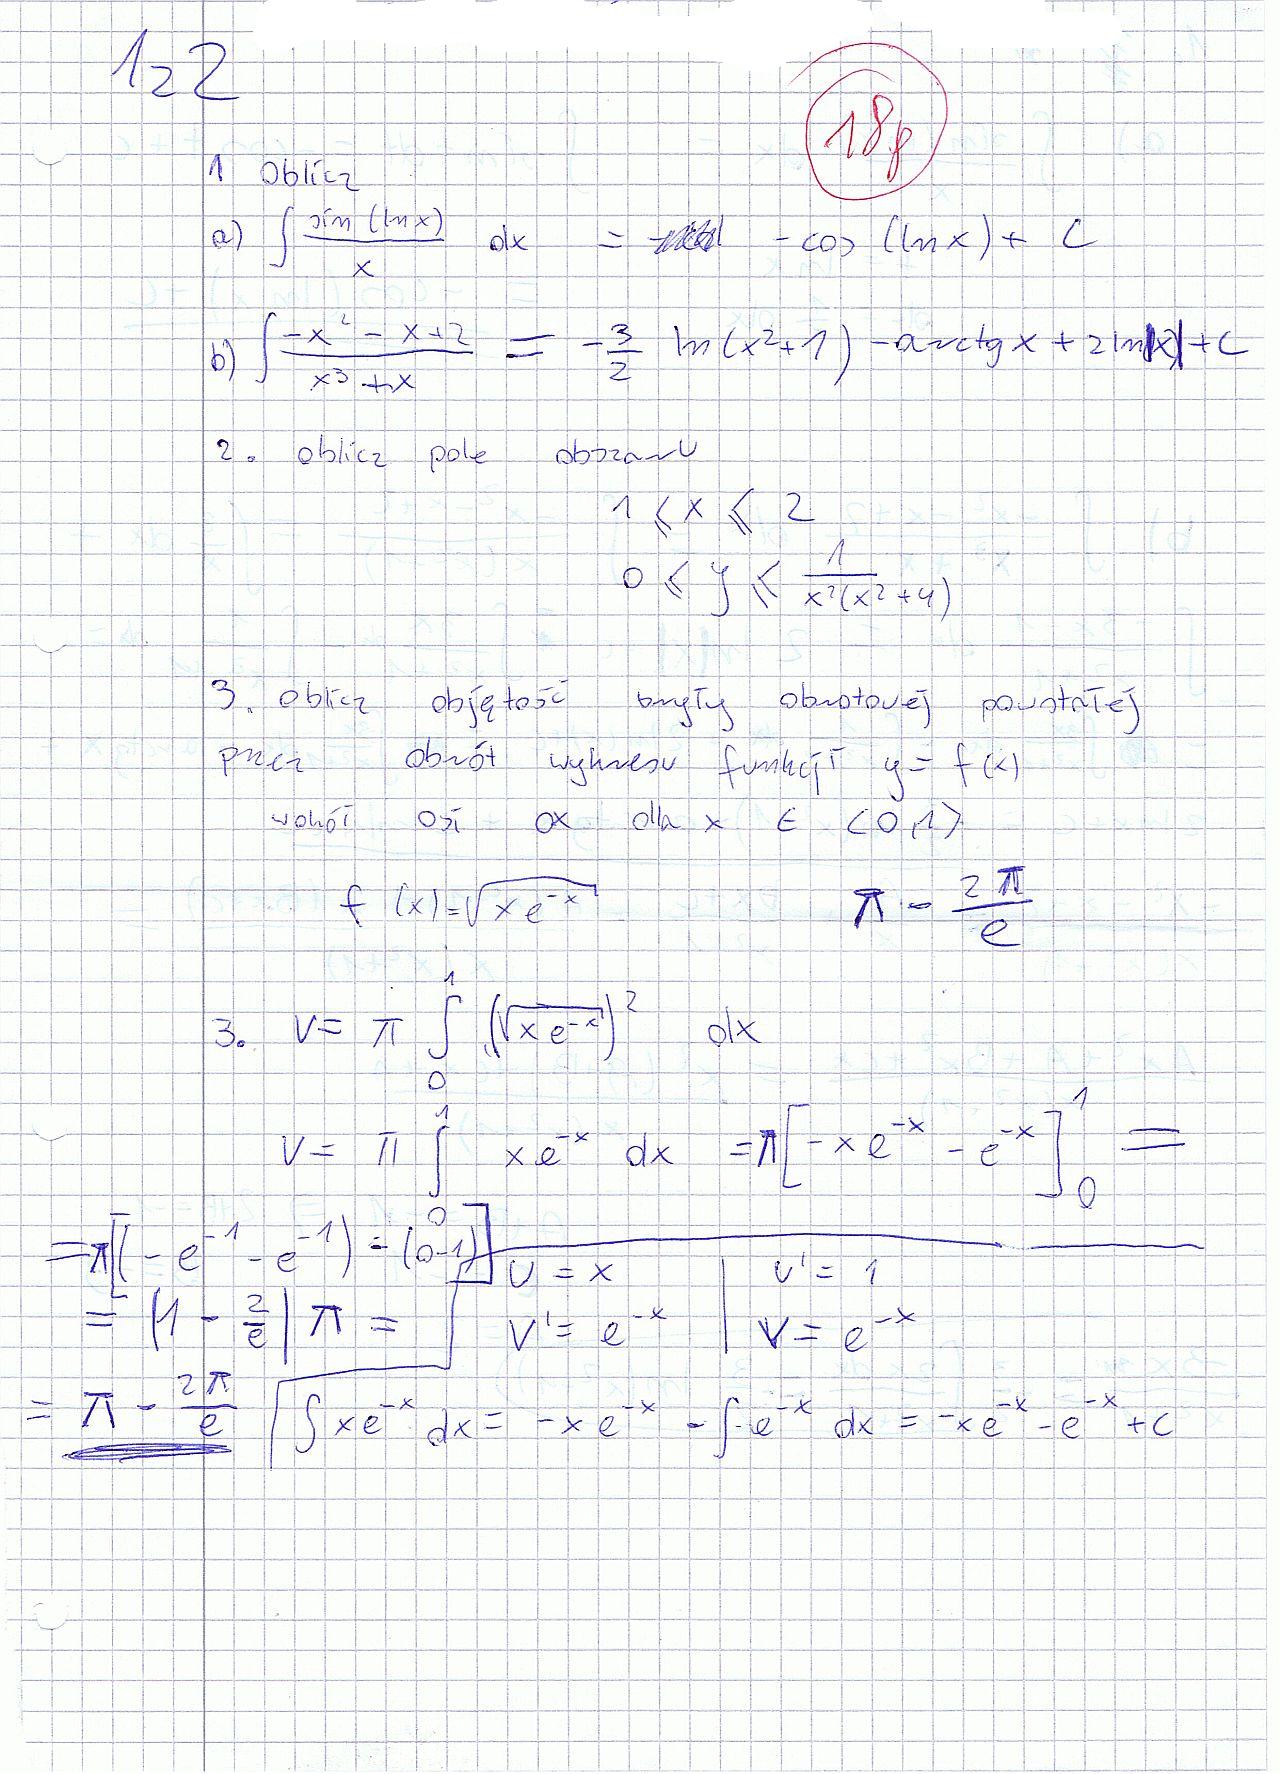 1z2
18p
1 Oblicz
a) ∫ sin (ln x) / x dx = - cos (ln x) + C
b) ∫ -x² - x + 2 / x³ + x = - 3/2 ln (x² + 1) - arctg x + 2 ln |x| + C
2. oblicz pole obszaru
1 ≤ x ≤ 2
0 ≤ y ≤ 1 / x²(x² + 4)
3. oblicz objętość bryły obrotowej powstałej
przez obrót wykresu funkcji y = f(x)
wokół osi ox dla x ∈ <0,1>
f (x) = √(x e^-x) π - 2π/e
3. V = π ∫₀¹ (√(x e^-x))² dx
V = π ∫₀¹ x e^-x dx = π [-x e^-x - e^-x]₀¹ =
= π [(- e^-1 - e^-1) - (0-1)]
U = x U' = 1
= |1 - 2/e| π =
V' = e^-x V = e^-x
= π - 2π/e
∫ x e^-x dx = -x e^-x - ∫ -e^-x dx = -x e^-x - e^-x + c